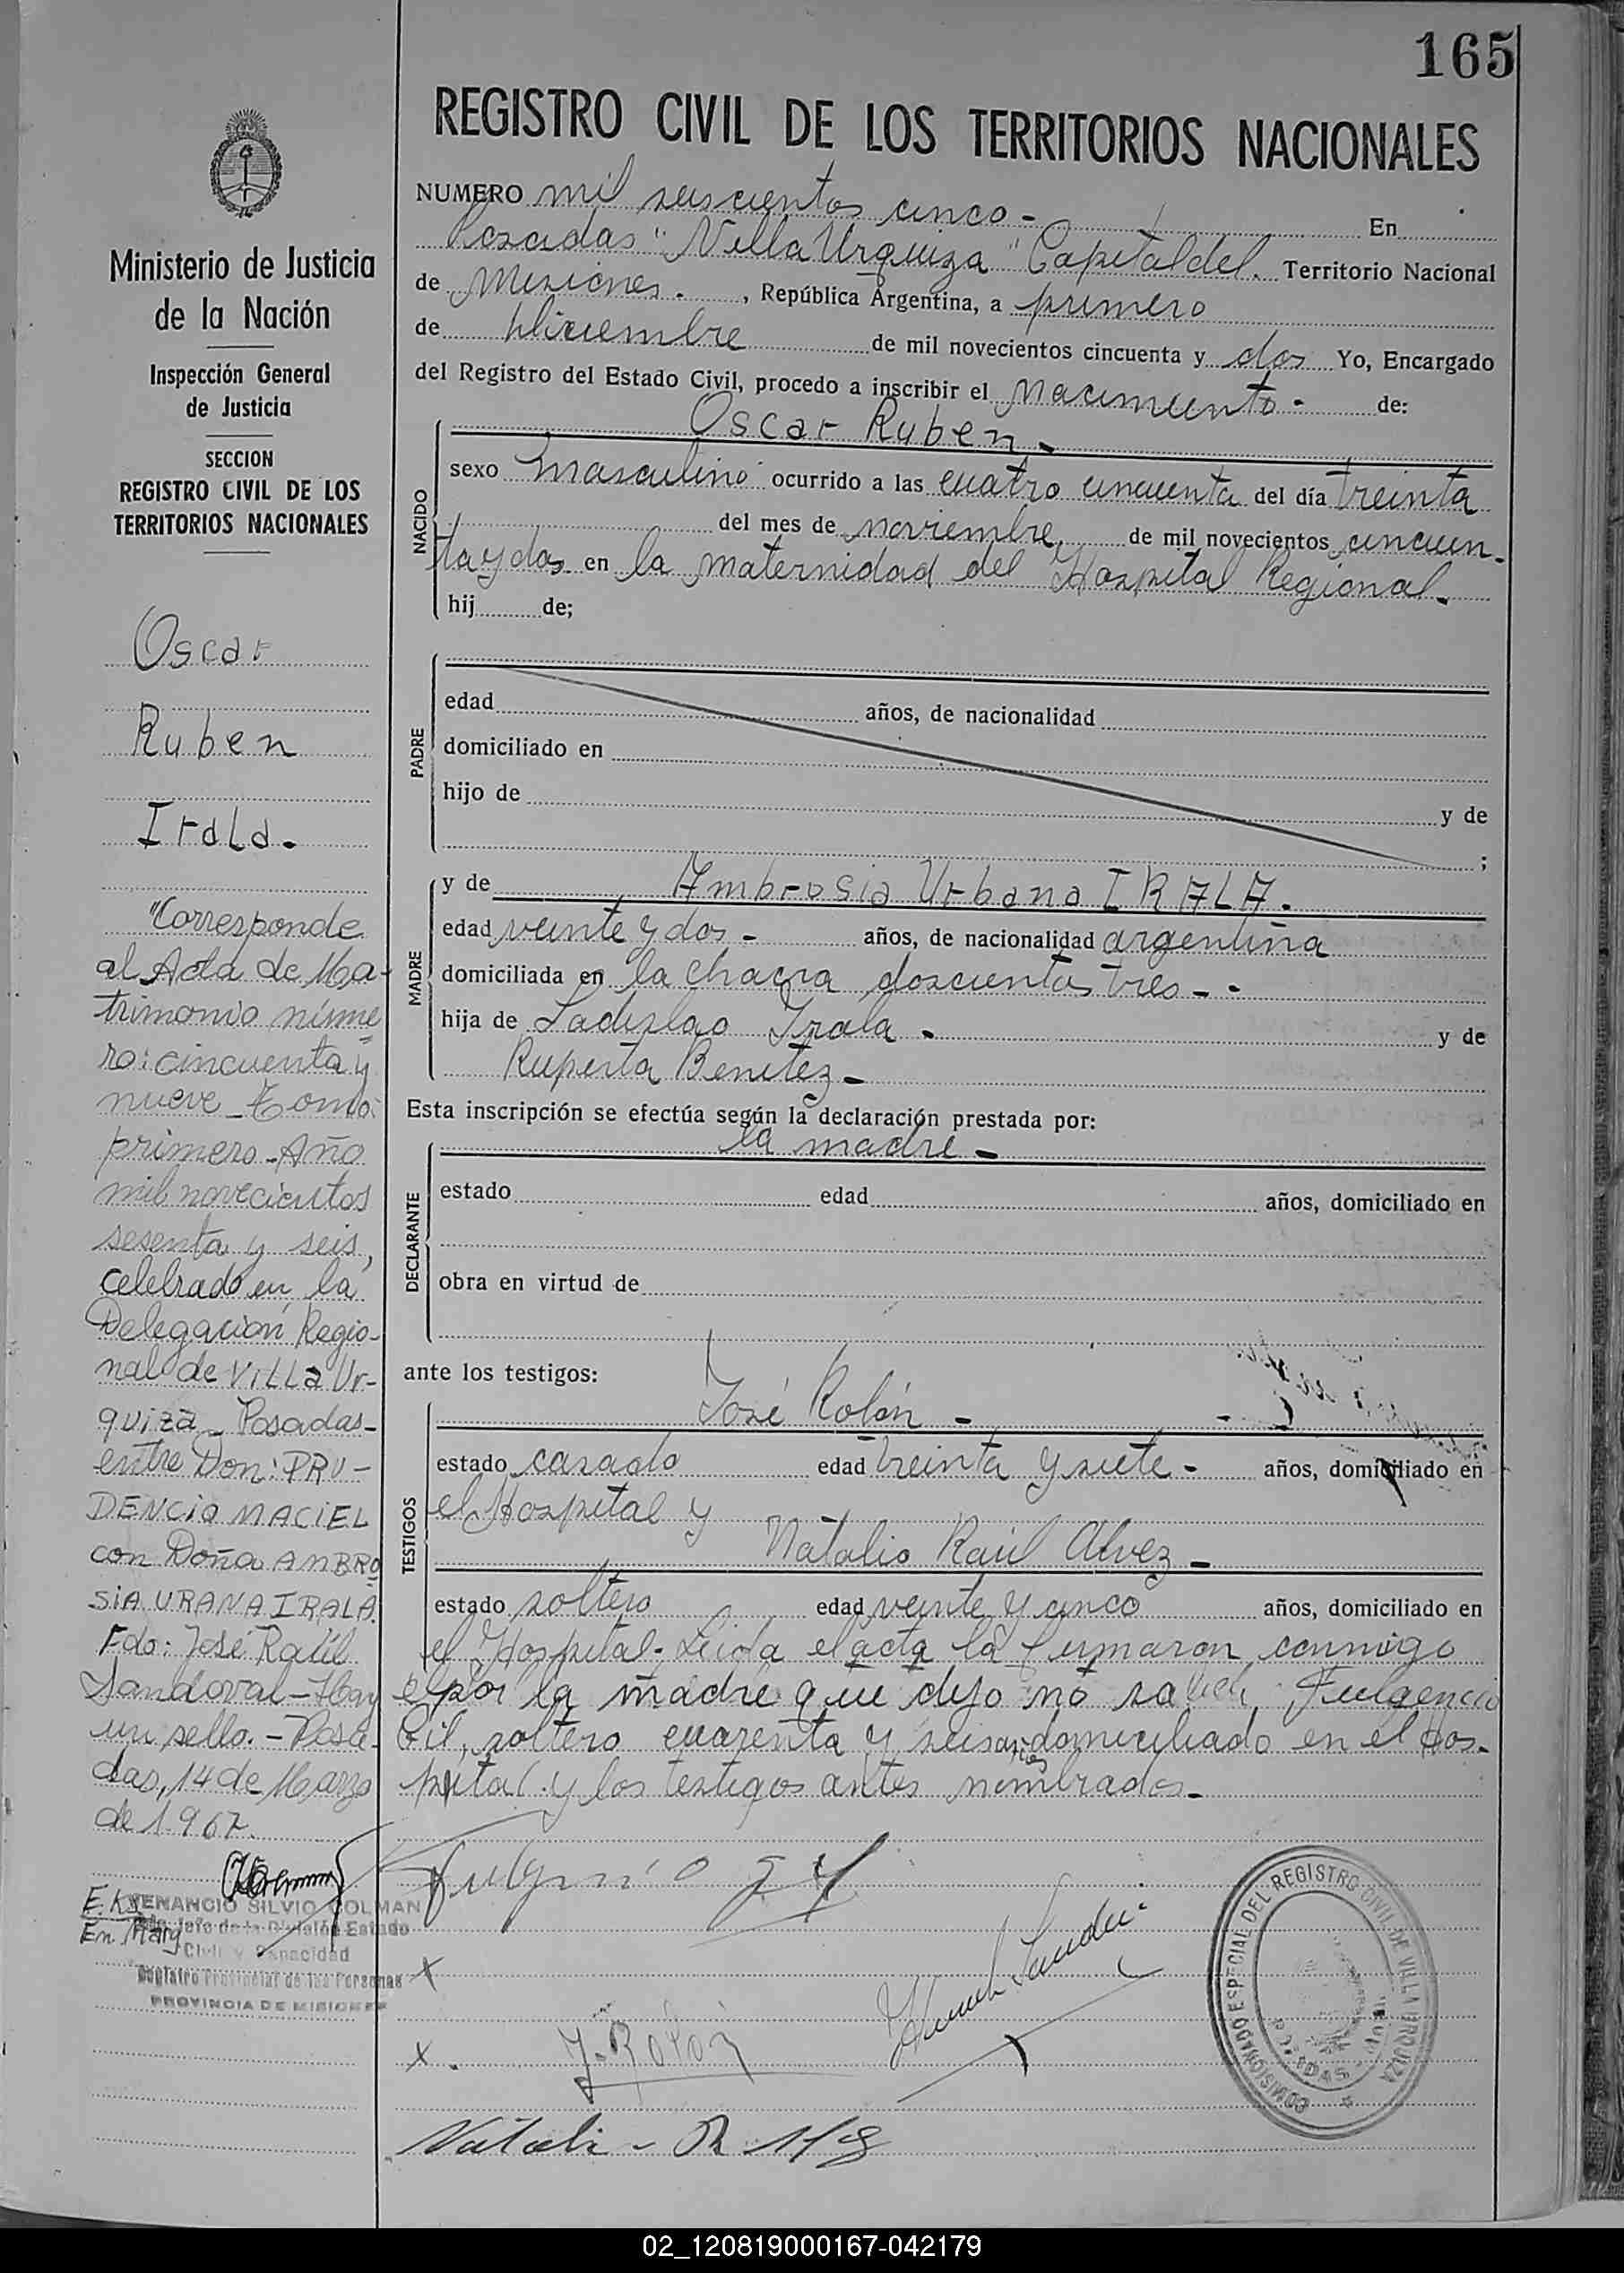 165
REGISTRO CIVIL DE LOS TERRITORIOS NACIONALES
Ministerio de Justicia
de la Nación
Inspección General
de Justicia
SECCION
REGISTRO CIVIL DE LOS
TERRITORIOS NACIONALES
Oscar
Ruben
Irala.
"Corresponde
al Acta de Ma-
trimonio núme
ro: cincuenta y
nueve - Tomo:
primero - Año
mil novecientos
sesenta y seis,
celebrado en la
Delegación Regio-
nal de VILLA Ur-
quiza - Posadas-
entre Don: PRU-
DENCIO MACIEL
con Doña AMBRO
SIA URANA IRALA.
Fdo: José Raúl
Sandoval - Hay
un sello. - Posa-
das, 14 de Marzo
de 1.967.
VENANCIO SILVIO COLMAN
Jefe de la División Estado
Civil y Capacidad
Registro Provincial de las Personas
PROVINCIA DE MISIONES
NUMERO mil seiscientos cinco - En
Posadas "Villa Urquiza" Capital del Territorio Nacional
de Misiones. , República Argentina, a primero
de Diciembre de mil novecientos cincuenta y dos Yo, Encargado
del Registro del Estado Civil, procedo a inscribir el Nacimiento - de:
Oscar Ruben -
NACIDO
sexo masculino ocurrido a las cuatro cincuenta del día treinta
del mes de noviembre de mil novecientos cincuen-
ta y dos en la maternidad del Hospital Regional.
hij de;
PADRE
edad años, de nacionalidad
domiciliado en
hijo de y de
;
MADRE
y de Ambrosia Urbana IRALA.
edad veinte y dos - años, de nacionalidad argentina
domiciliada en la chacra doscientos tres - -
hija de Ladislao Irala - y de
Ruperta Benitez -
Esta inscripción se efectúa según la declaración prestada por:
la madre -
DECLARANTE
estado edad años, domiciliado en
obra en virtud de
ante los testigos:
José Rolón -
TESTIGOS
estado casado edad treinta y siete - años, domiciliado en
el Hospital y
Natalio Raúl Alvez -
estado soltero edad veinte y cinco años, domiciliado en
el Hospital. Leida el acta la firmaron conmigo
por la madre que dijo no saber, Fulgencio
Gil, soltero cuarenta y seis años domiciliado en el Hos-
pital y los testigos antes nombrados -
J. Rolón
COMISIONADO ESPECIAL DEL REGISTRO CIVIL DE VILLA URQUIZA
02_120819000167-042179